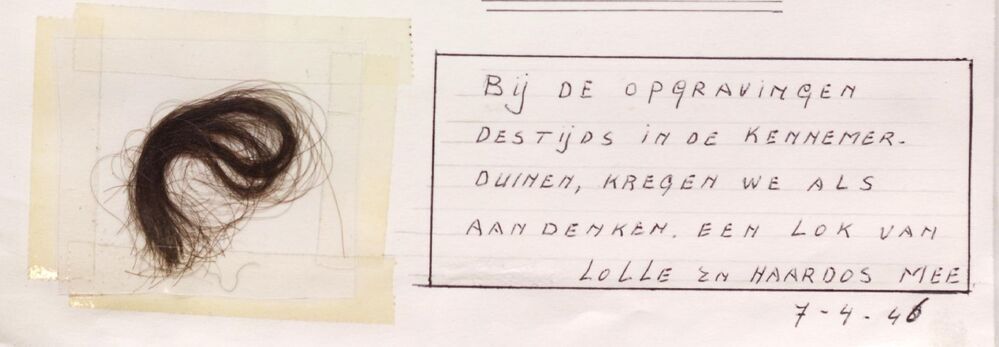 Bij DE OPGRAVINGEN
DESTIJDS IN DE KENNEMER-
DUINEN, KREGEN WE ALS
AANDENKEN. EEN LOK VAN
LOLLE ZN HAARDOS MEE
7-4-46